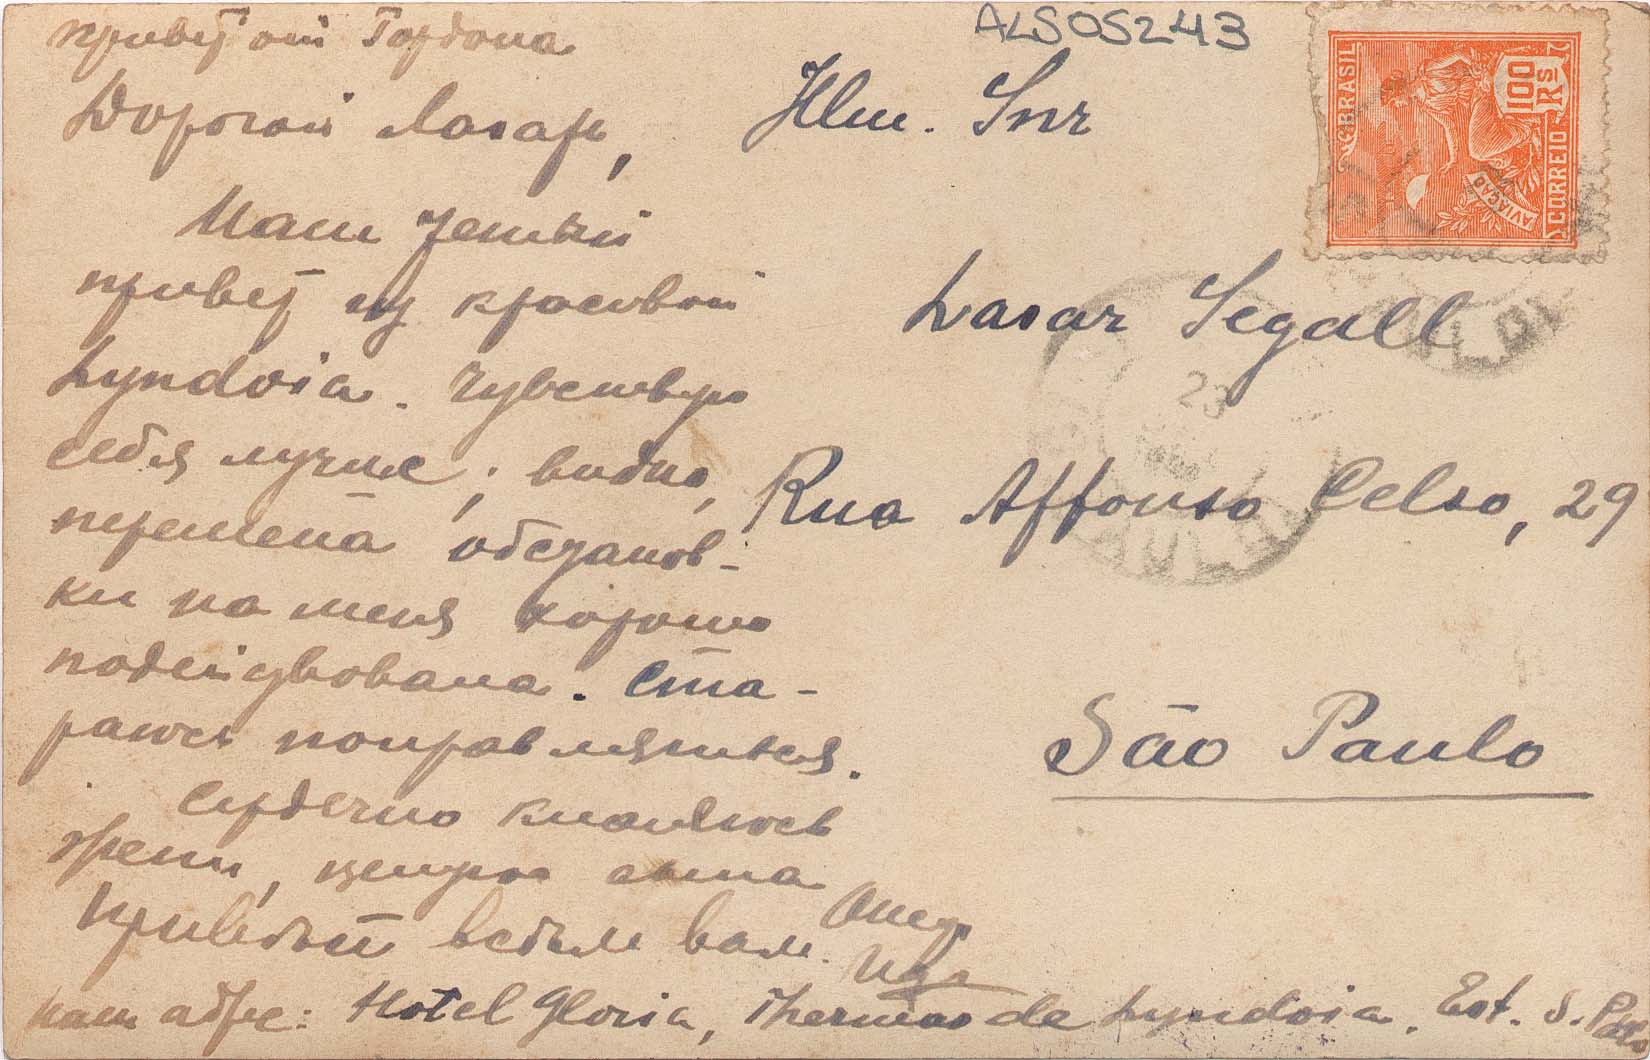 привет от Гордона
Дорогой Лазарь,
Наш
привет из красивой
Lyndoia. Чувствую
себя лучше, видно,
перемена обстанов-
ки на меня хорошо
подействовала. Ста-
раюсь поправляться.
Сердечно кланяюсь
Жене, целую сына
Привет всем вам.
наш адрес: Hotel Gloria, Thermas de Lyndoia. Est. S. Paulo
ALS05243
Illm. Snr
Lasar Segall
Rua Affonso Celso, 29
São Paulo
BRASIL
100 Rs
CORREIO
AVIAÇÃO
23
PAULO